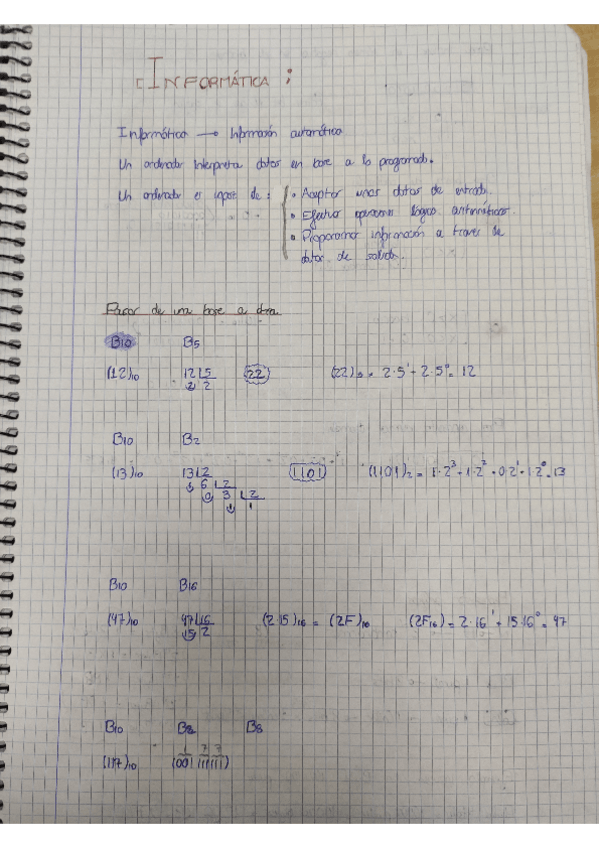 INFORMÁTICA:
Informática → Información automática
Un ordenador interpreta datos en base a lo programado.
Un ordenador es capaz de: • Aceptar unos datos de entrada.
• Efectuar operaciones lógico aritméticas.
• Proporcionar información a través de
datos de salida.
Pasar de una base a otra
B10 B5
(12)10 12 5 (22) (22)5 = 2·5¹ + 2·5⁰ = 12
2 2
B10 B2
(13)10 13 2 (1101) (1101)2 = 1·2³ + 1·2² + 0·2¹ + 1·2⁰ = 13
1 6 2
0 3 2
1 1
B10 B16
(47)10 47 16 (2·15)16 = (2F)16 (2F16) = 2·16¹ + 15·16⁰ = 47
15 2
B10 B2 B8
1 7 7
(117)10 (001 111 111)